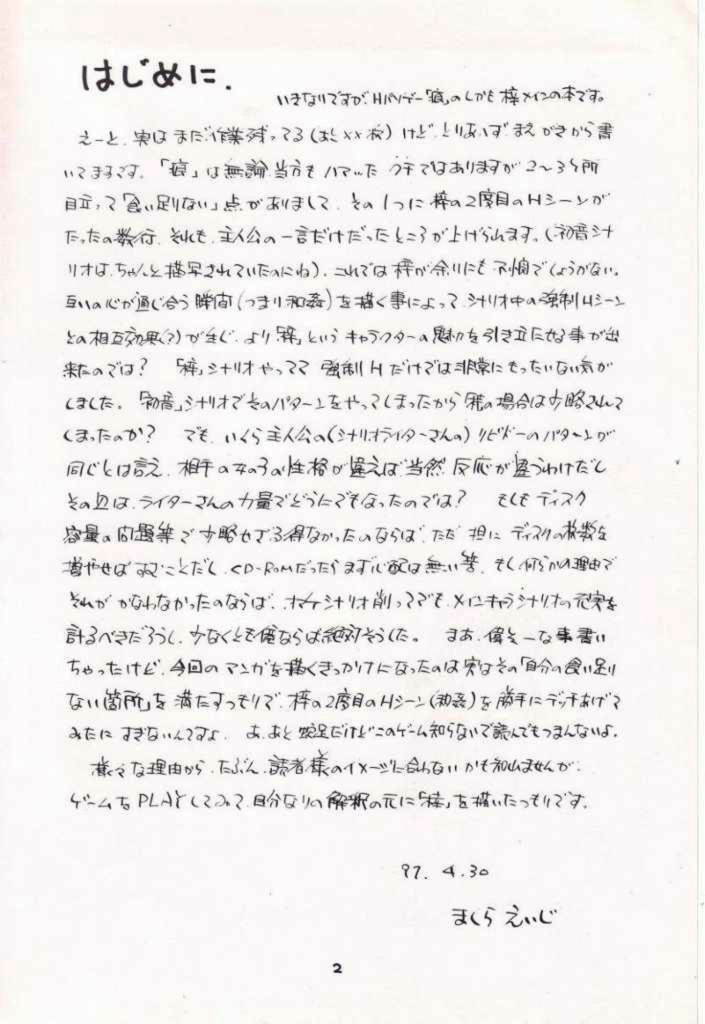 はじめに.
いきなりですが、Hパソゲー「痕」のしかも 梓メインの本です。
えーと、実は まだ作業残ってる(あと××枚)けど、とりあいず、まえがきから書
いてますです。「痕」は無論、当方も ハマったクチではありますが 2〜3ヶ所
目立って「食い足りない」点がありまして、その1つに 梓の2度目のHシーンが
たったの数行、それも、主人公の一言だけだったところが上げられます。(初音シナ
リオは、ちゃんと描写されていたのにね)、これでは 梓が余りにも 不憫でしょうがない。
互いの心が通じ合う 瞬間(つまり和姦)を描く事によって、シナリオ中の強制Hシーン
との相互効果(?)が生じ、より「梓」という キャラクターの魅力を引き立たせる事が出
来たのでは? 「梓」シナリオやってて 強制Hだけでは非常にもったいない気が
しました。「初音」シナリオでそのパターンをやってしまったから 梓の場合は少略されて
しまったのか? でも、いくら主人公の(シナリオライターさんの)リビドーのパターンが
同じとは言え、相手の女の子の性格が違えば 当然 反応が違うわけだし
その辺は、ライターさんの力量でどうにでもなったのでは? もしも ディスク
容量の問題等で 少略せざる得なかったのならば、ただ 担に ディスクの枚数を
増やせば すむことだし、CD-ROMだったら まず心配は無い筈、もし何らかの理由で
それが かなわなかったのならば、オマケシナリオ削ってでも、メインキャラシナリオの充実を
計るべきだろうし、少なくとも俺ならば絶対そうした。 まあ、偉そーな事書い
ちゃったけど、今回の マンガを描くきっかけになったのは 実はその「自分の食い足り
ない箇所」を 満たすつもりで、梓の2度目のHシーン(和姦)を 勝手に デッチあげて
みたに すぎないんですよ、あ、あと 蛇足だけど このゲーム知らないで読んでもつまんないよ。
様々な理由から、たぶん、読者様のイメージに合わない かも 知れませんが、
ゲームを PLAYしてみて、自分なりの 解釈の元に「梓」を 描いたつもりです。
97. 4.30
まくら えいじ
2